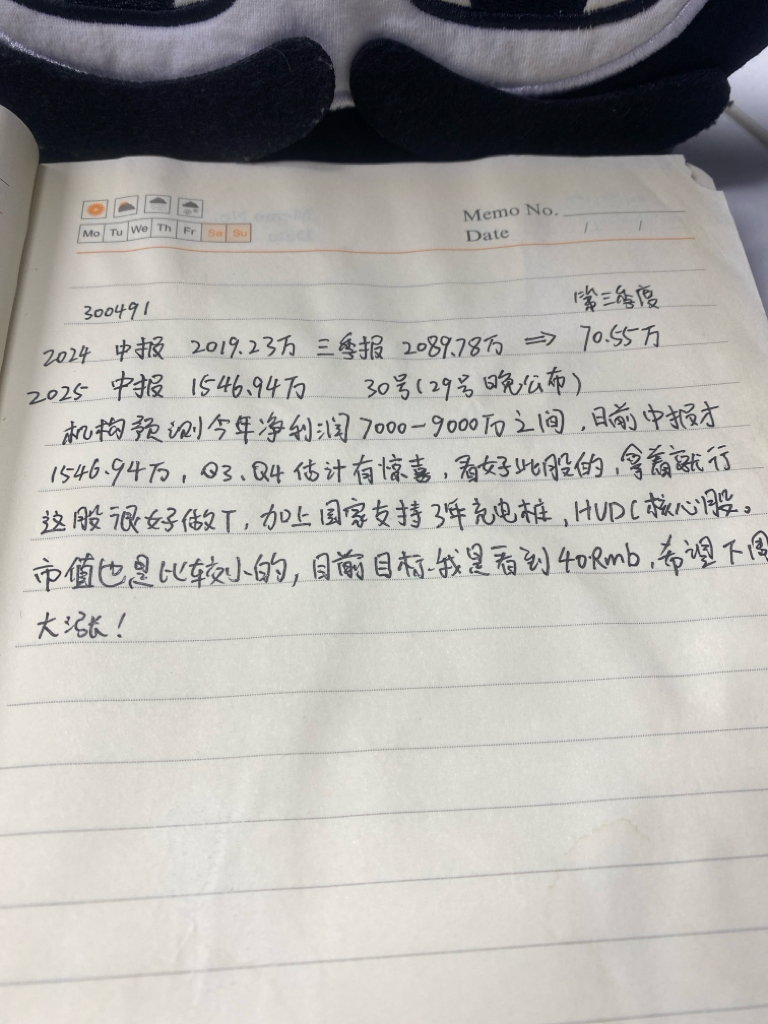 Memo No.
Mo Tu We Th Fr Sa Su
Date / /
300491 第三季度
2024 中报 2019.23万 三季报 2089.78万 => 70.55万
2025 中报 1546.94万 30号(29号晚公布)
机构预测今年净利润7000-9000万之间,目前中报才
1546.94万,Q3、Q4估计有惊喜,看好此股的,拿着就行
这股很好做T,加上国家支持3年充电桩,HVDC核心股。
市值也是比较小的,目前目标我是看到40Rmb,希望下周
大涨!